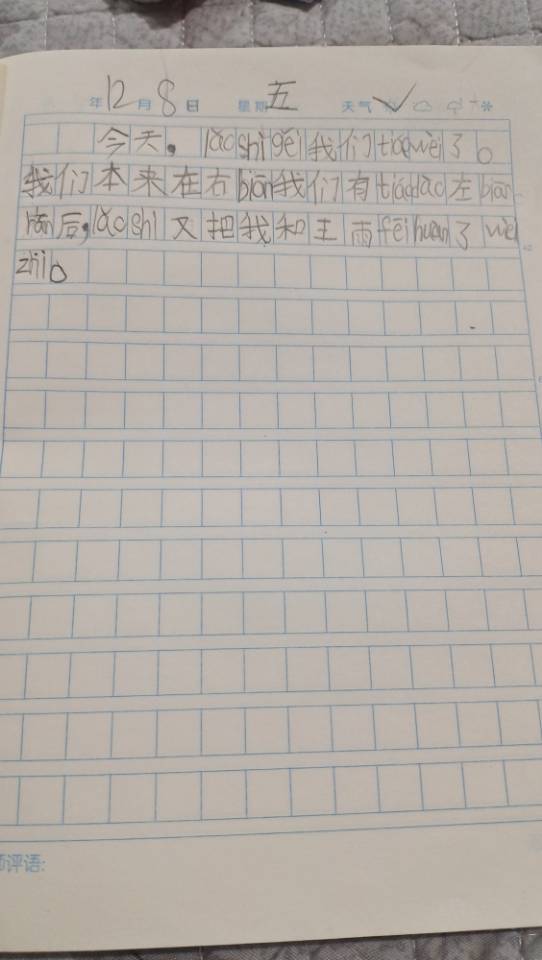 年12月8日 星期五 天气
今天，lǎo shī gěi 我们 tiáo wèi 了。
我们本来在右 biān 我们有 tiáo dào 左 biān
rán 后，lǎo shī 又把我和王雨 fēi huàn 了 wèi
zhi。
师评语: